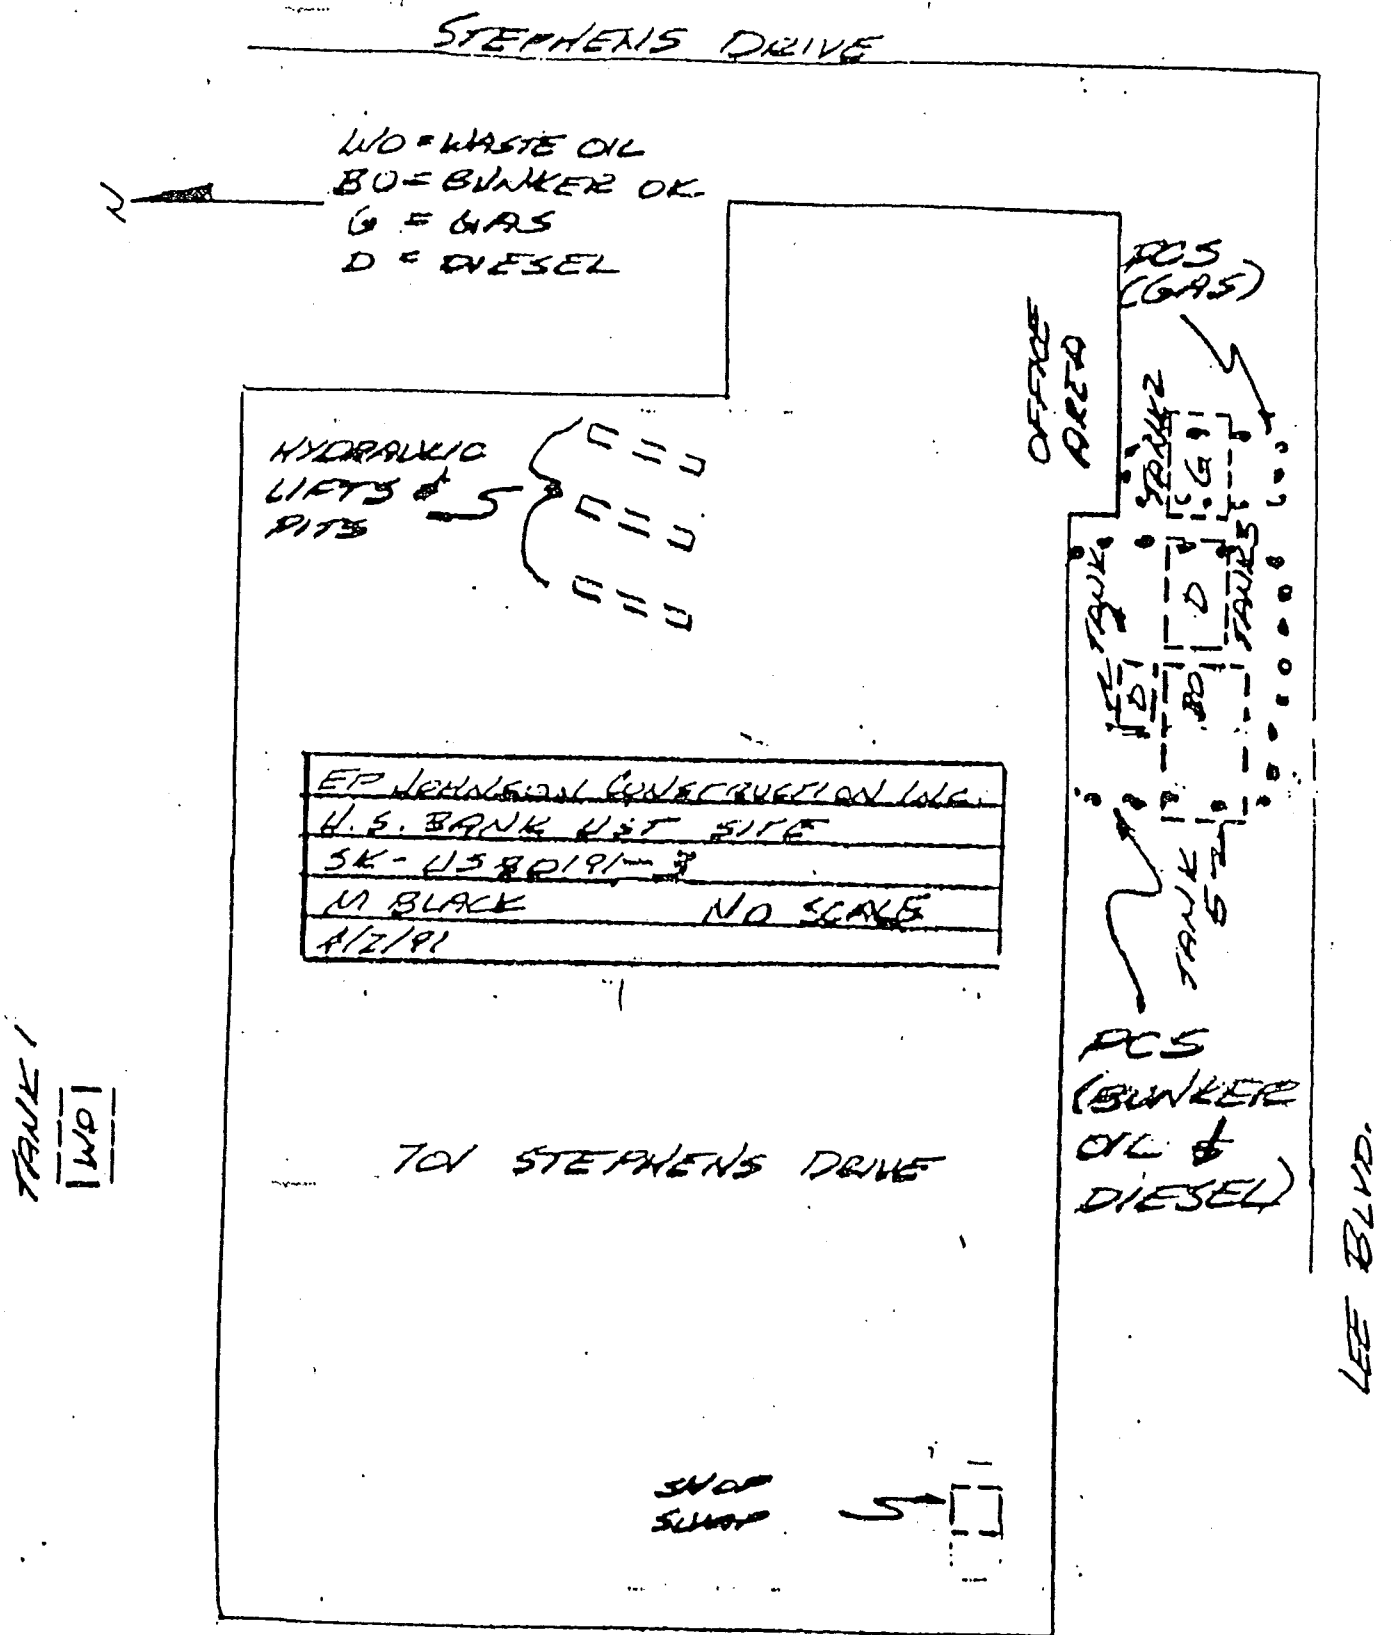 STEPHENS DRIVE
WO = WASTE OIL
BO = BUNKER OIL
G = GAS
D = DIESEL
N
PCS
(GAS)
OFFICE
AREA
TANK 2
G
HYDRAULIC
LIFTS &
PITS
TANK
D
TANK 3
D
BO
EP JOHNSON CONSTRUCTION INC.
U.S. BANK UST SITE
M BLACK NO SCALE
TANK
5
PCS
(BUNKER
OIL &
DIESEL)
TANK 1
WO
701 STEPHENS DRIVE
LEE BLVD.
SHOP
SUMP